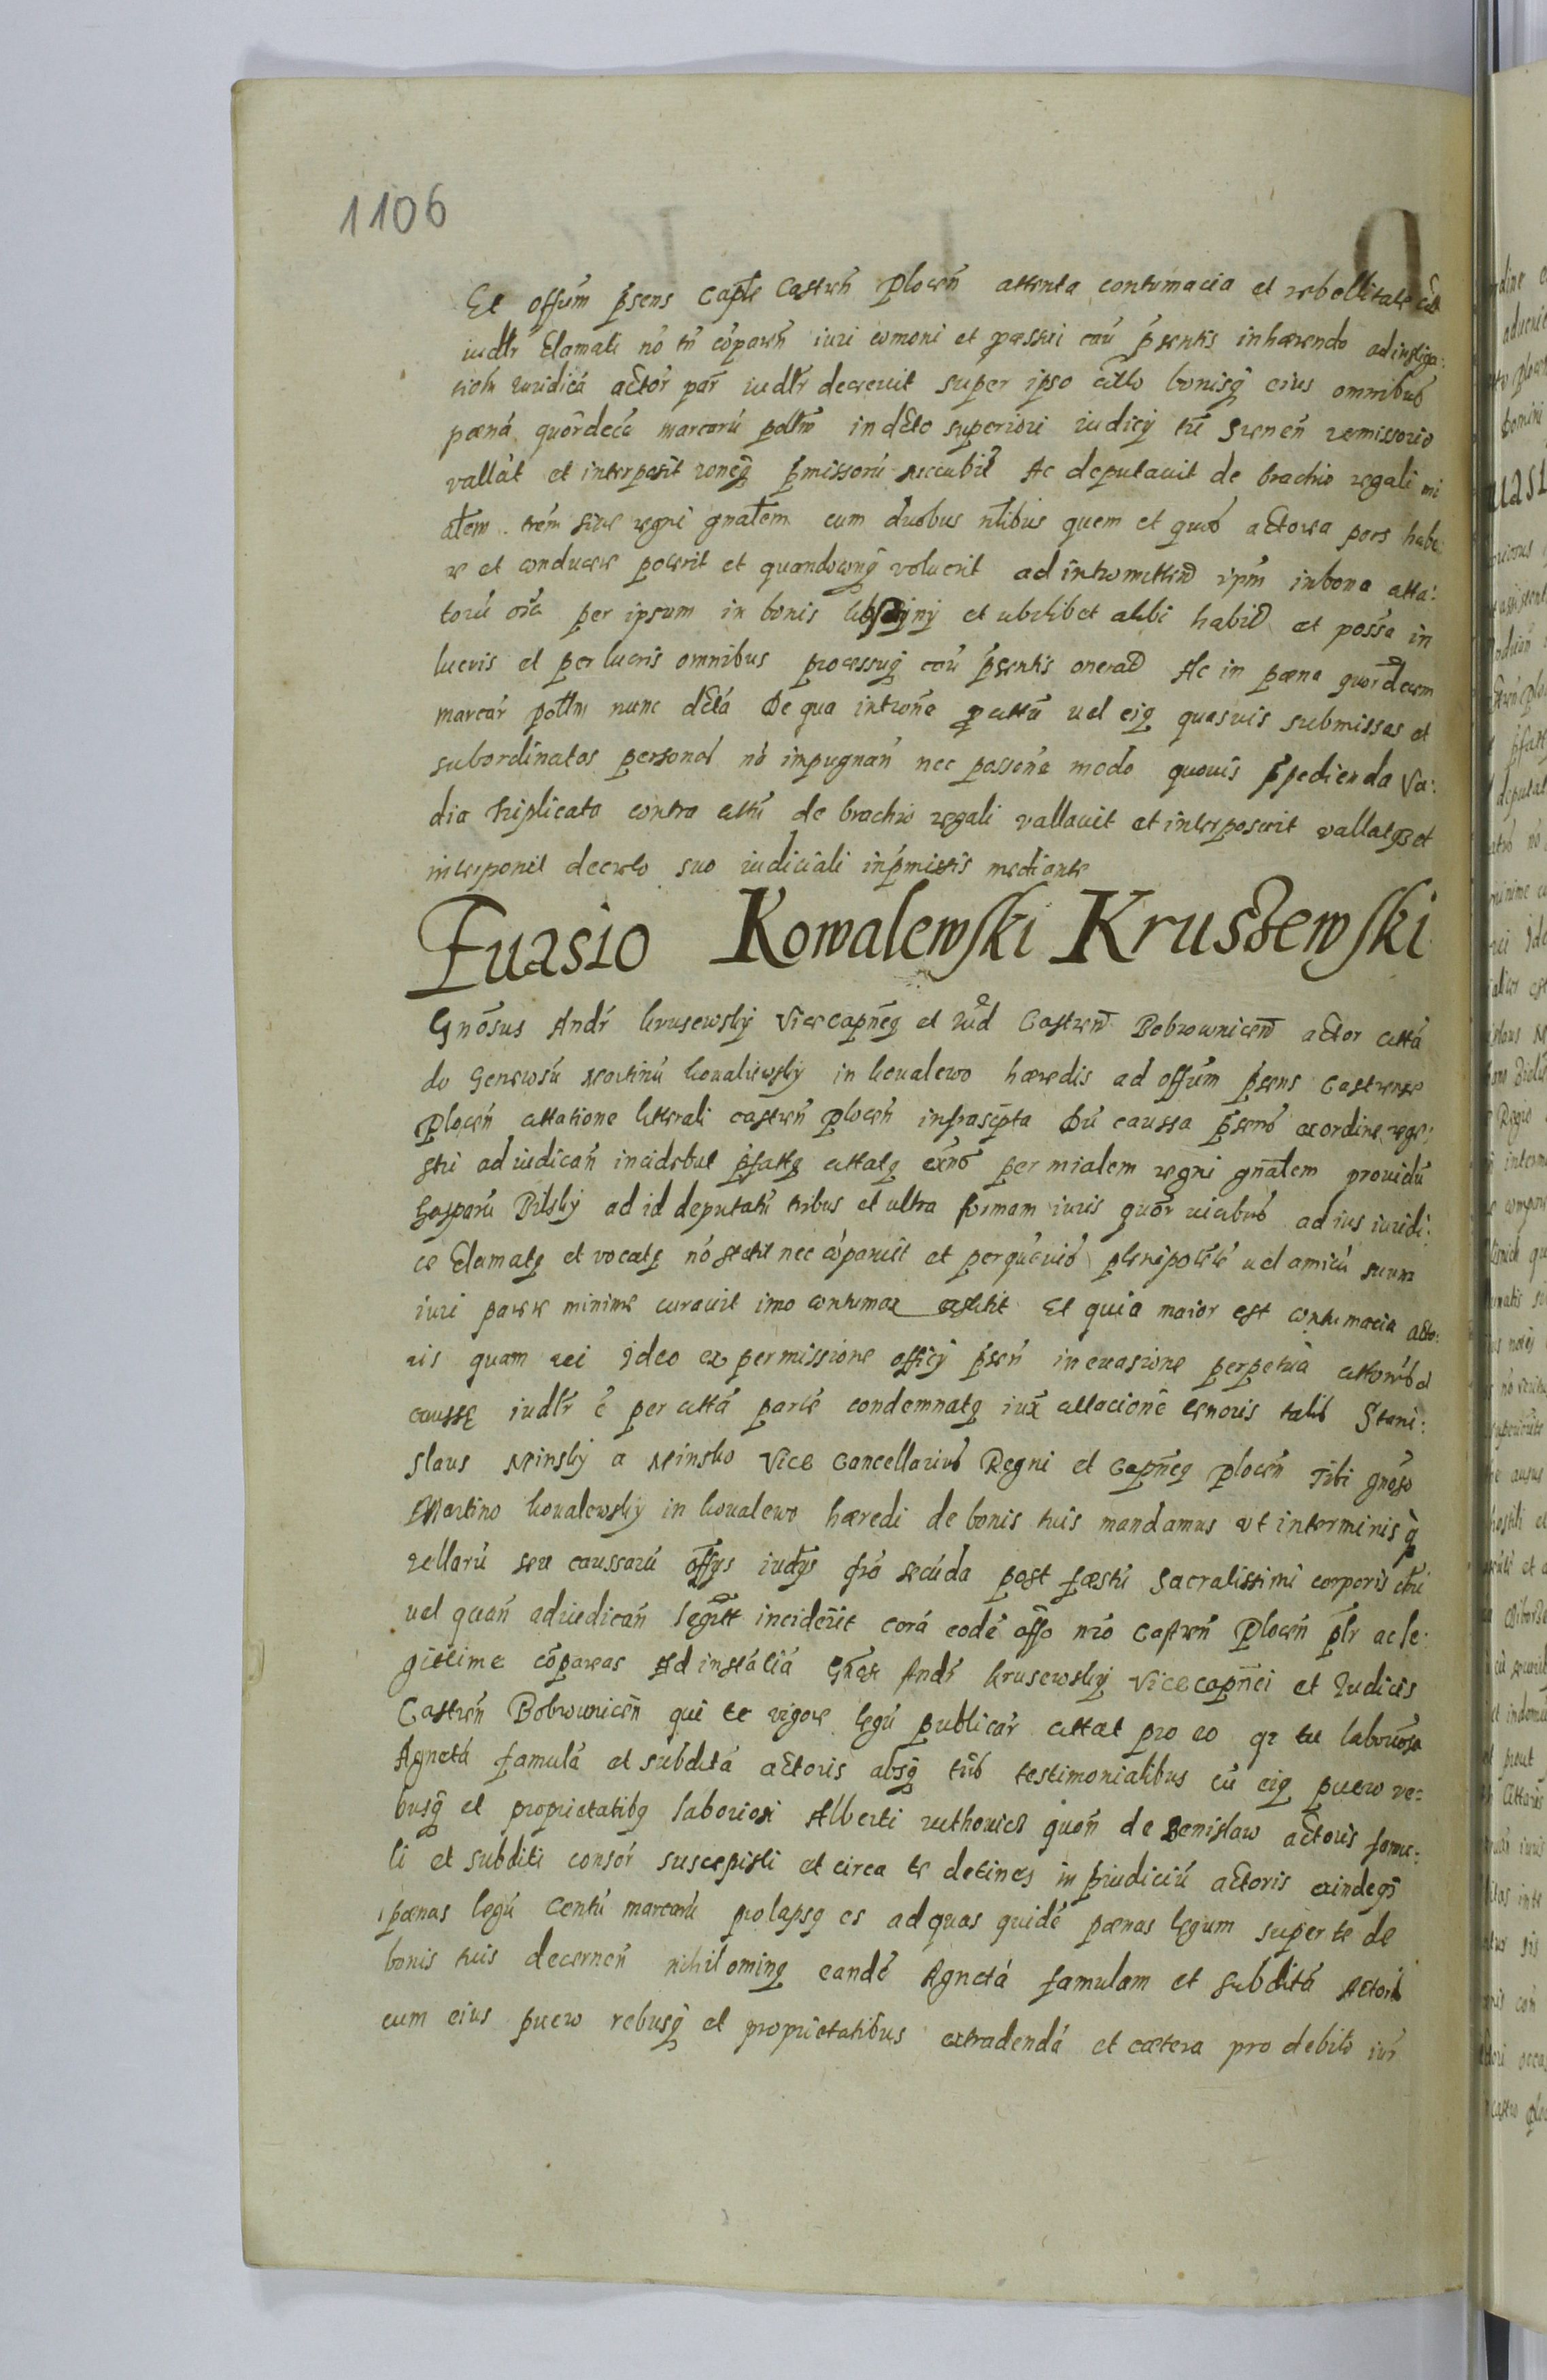 1106
Et offũm p̃sens Caple Castreñ Ploceñ attenta contumacia et rebellitate
iudlr̃ clamati nõ tñ cõpareñ iuri comuni et processui cau p̃sentis inhærendo ad instiga:
tioñ Iuridicã actor̃ par̃ iudlr̃ decrevit super ipso cttto bonisq̃ eius omnibus
pæna quordecẽ marcarũ poltñ in dcto superiori iudicÿ remissorio
vallat et interposit roneq̃ p̃missorũ succubit Ac deputavit de brachio regali mi
alem regni gnalem cum duobus nlibus quem et quos actorea pars habe
re et conducere poterit et quandocunq̃ voluerit ad intromitteñ ipm in bona citta:
torũ oĩa per ipsum in bonis et ubilibet alibi habit et possa in
lucris et perlucris omnibus processuq̃ cau p̃sentis onerað Ac in pæna quordecem
marcar̃ poltñ nunc dctã De qua intromẽ p cittũ vel eiq quasvis submissas et
subordinatas personas nõ impugnañ nec possone modo quovis p̃pedienda Va:
dia triplicata contra cittũ de brachio regali vallavit et interposuit vallatqz et
interponit decreto suo iudiciali in p̃missis mediante
Euasio Kowalewski Kruszewski
Gnosus Andr̃ Krusewskÿ Vicecapneq et Iud Castreñ Bobrowniceñ actor citta
do Generosũ Martinũ Koualiewskÿ in Koualewo hæredis ad offũm p̃sens Castrense
Ploceñ cittatione litterali castreñ Ploceñ infrascripta Dũ caussa p̃sens ex ordine rege:
stri ad iudicañ incidebat p̃fattq cittatq exñs per mialem regni gnalem providũ
Gasparũ Bilskÿ ad id deputatũ tribus et ultra formam iuris quor̃ vicibus ad ius iuridi:
ce clamatq et vocatq nõ stetit nec cõparuit et perquevis plenipotẽtẽ vel amicũ suum
iuri parere minime curavit imo contumax astitit Et quia maior est contumacia acto:
ris quam rei Ideo ex permissione officÿ p̃señ in evasione perpetua
caussę iudlr̃ ẽ per cittã partẽ condemnatq iux cittacionẽ tenoris talis Stani:
slaus Minskÿ a Minsko Vice Cancellarius Regni et Capneq Ploceñ Tibi gnoso
Martino Koualewskÿ in Koualewo hæredi de bonis tuis mandamus ut in terminis q̃
rellarũ seu caussarũ offÿs iudÿs fr̃a secũda post fæstũ Sacratissimi corporis chri
vel quañ adiudicañ incideñt corã eodẽ offo nr̃o Castreñ Ploceñ plr̃ ac le:
gittime cõpareas Ad instãtiã Andr̃ Krusewskÿ Vicecapnei et Iudicis
Castreñ Bobrowniceñ qui te vigore legũ publicar̃ cittat pro eo qz tu laboriosa
Agnetã famulã et subditã actoris absq̃ testimonialibus cũ eiq puero re:
busq̃ et proprietatibq laboriosi Alberti quoñ de actoris famu:
li et subditi consor̃ suscepisti et circa te detines in p̃iudiciũ actoris exindeq̃
pænas legũ centũ marcarũ prolapsq es ad quas quidẽ pænas legum super te de
bonis tuis decerneñ nihilominq eandẽ Agnetã famulam et subditã Actoris
cum eius puero rebusq̃ et proprietatibus extradendã et cætera pro debito iur̃